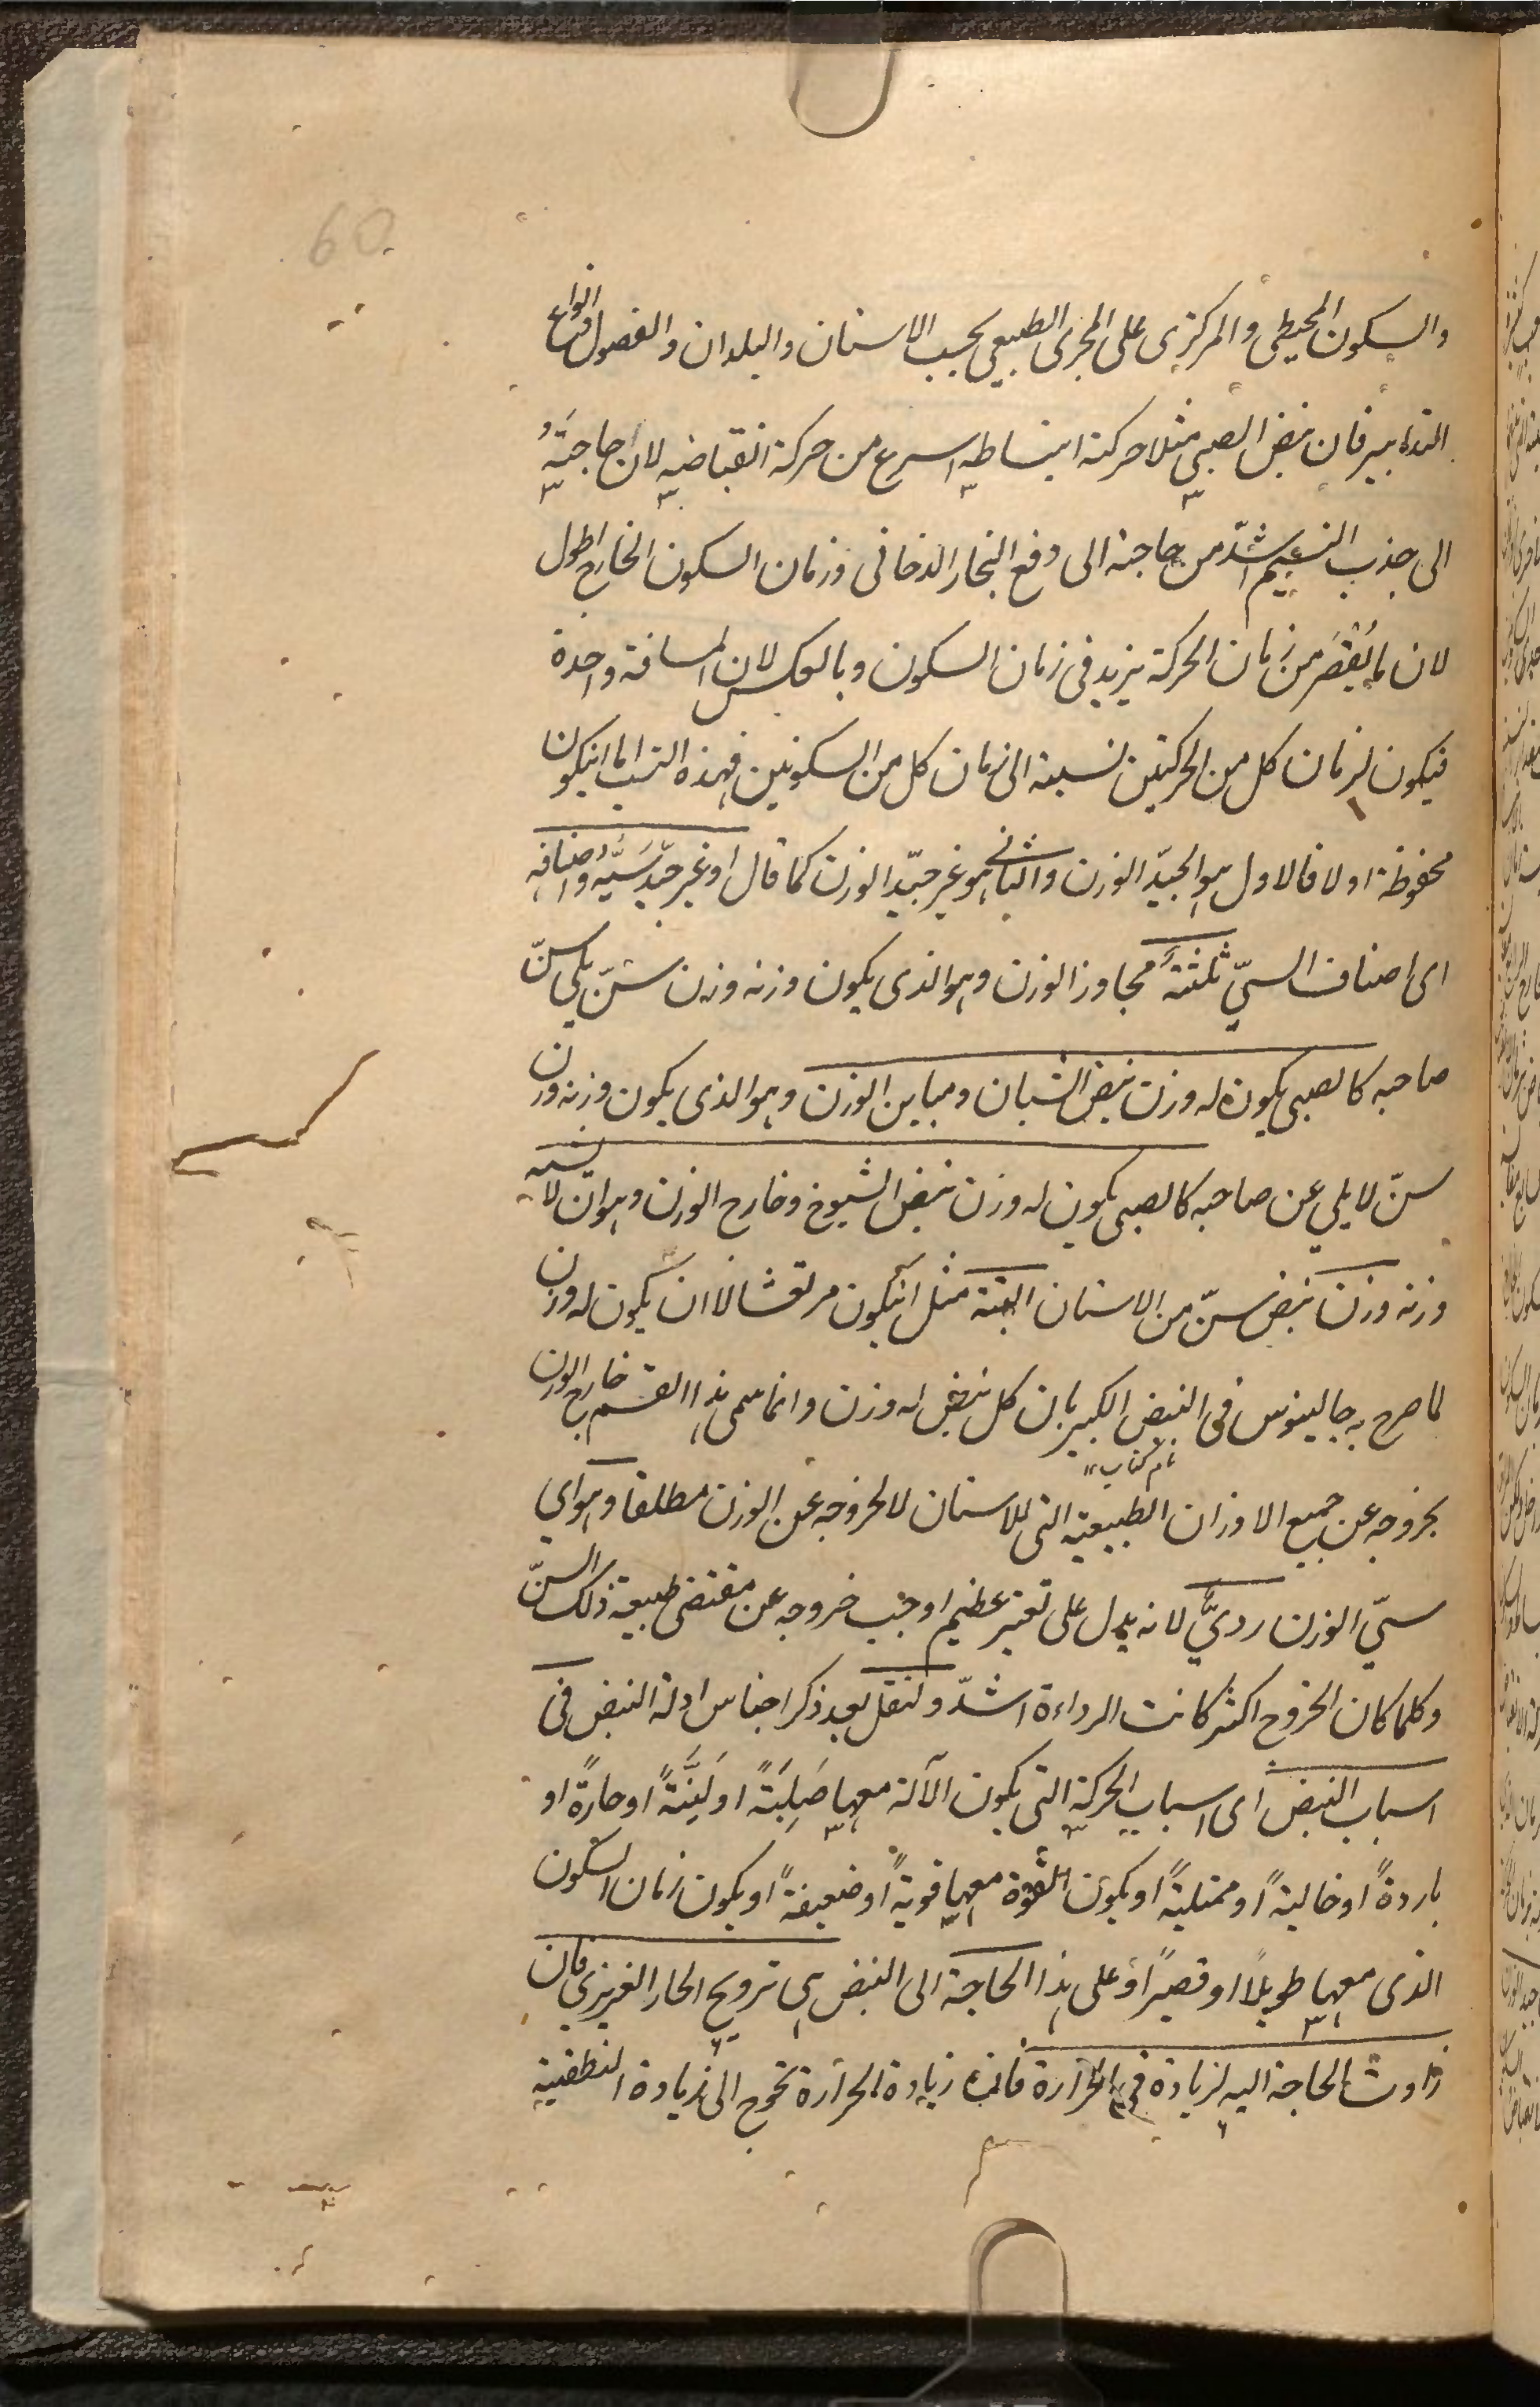 60
والسكون المحيطي والمركزي على المجرى الطبيعي بحسب الاسنان والبلدان والفصول وانواع
التدابير فان نبض الصبي مثلا حركة انبساطه اسرع من حركة انقباضه لان حاجتَهُ
الى جذب النسيم اشدّ من حاجته الى دفع البخار الدخاني وزمان السكون الخارج اطول
لان ما يُقْصَر من زمان الحركة يزيد في زمان السكون وبالعكس لان المسافة واحدة
فيكون لزمان كل من الحركتين نسبة الى زمان كل من السكونين فهذه النسب اما انيكون
محفوظة اولا فالاول هو الجيّد الوزن والثاني هو غير جيّد الوزن كما قال او غير جيّد سَيِّئُه واصنافه
اى اصناف السيّ ثلثة مجاوز الوزن وهو الذي يكون وزنه وزن سنّ يلي سنّ
صاحبه كالصبي يكون له وزن نبض الشبان ومباين الوزن وهو الذي يكون وزنه وزن
سنّ لا يلي عن صاحبه كالصبي يكون له وزن نبض الشيوخ وخارج الوزن وهو ان لا يشبه
وزنه وزن نبض سنّ من الاسنان البتة مثل انيكون مرتعشا لا ان يكون له وزن
لما صرح به جالينوس في النبض الكبير بان كل نبض له وزن وانما سمى هذا القسم خارج الوزن
نام كتاب
بخروجه عن جميع الاوزان الطبيعية التي للاسنان لا لخروجه عن الوزن مطلقا وهو اي
سيّ الوزن رديٌّ لانه يدل على تغير عظيم اوجب خروجه عن مقتضى طبيعة ذلك السنّ
وكلما كان الخروج اكثر كانت الرداءة اشدّ ولنقل بعد ذكر اجناس ادلة النبض في
اسباب النبض اى اسباب الحركة التي يكون الآلة معها صَلِبَتةً او لَيِّنَةً او حارةً او
باردةً او خاليةً او ممتليةً او يكون القوة معها قويةً او ضعيفةً او يكون زمان السكون
الذي معها طويلاً او قصيرًا وعلى هذا الحاجة الى النبض هي ترويح الحار الغريزي فان
زادت الحاجة اليه لزيادة في الحرارة فان زيادة الحرارة تحوج الى زيادة التطفية